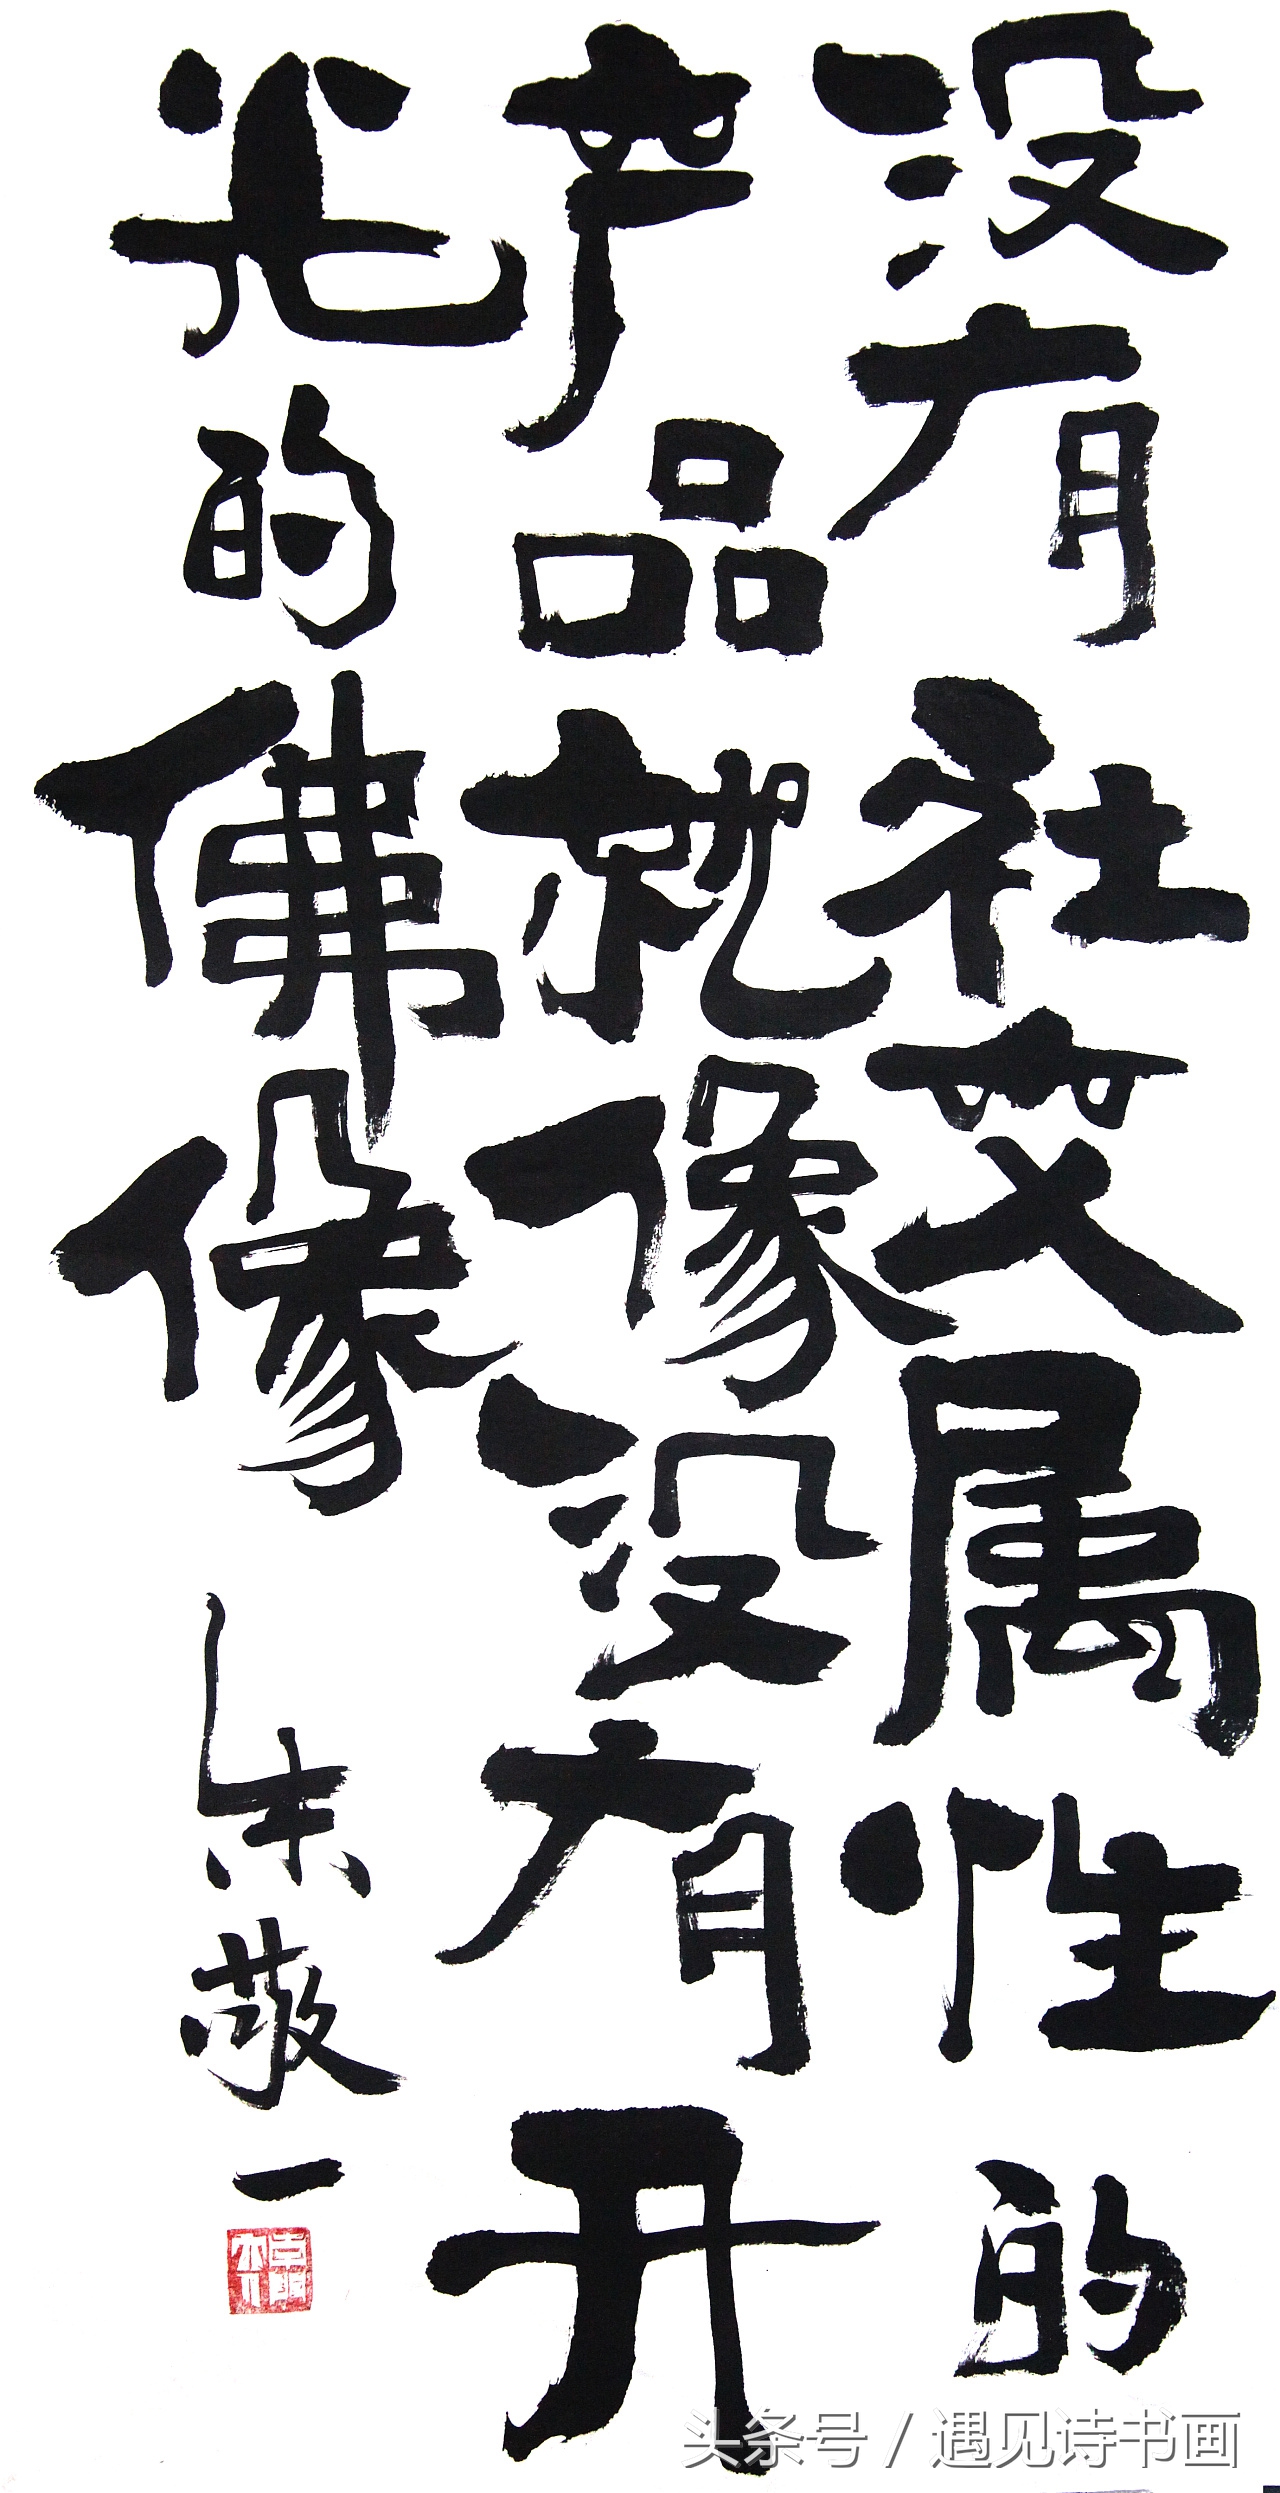 没有社交属性的
产品就像没有开
光的佛像
朱敬一
头条号 / 遇见诗书画